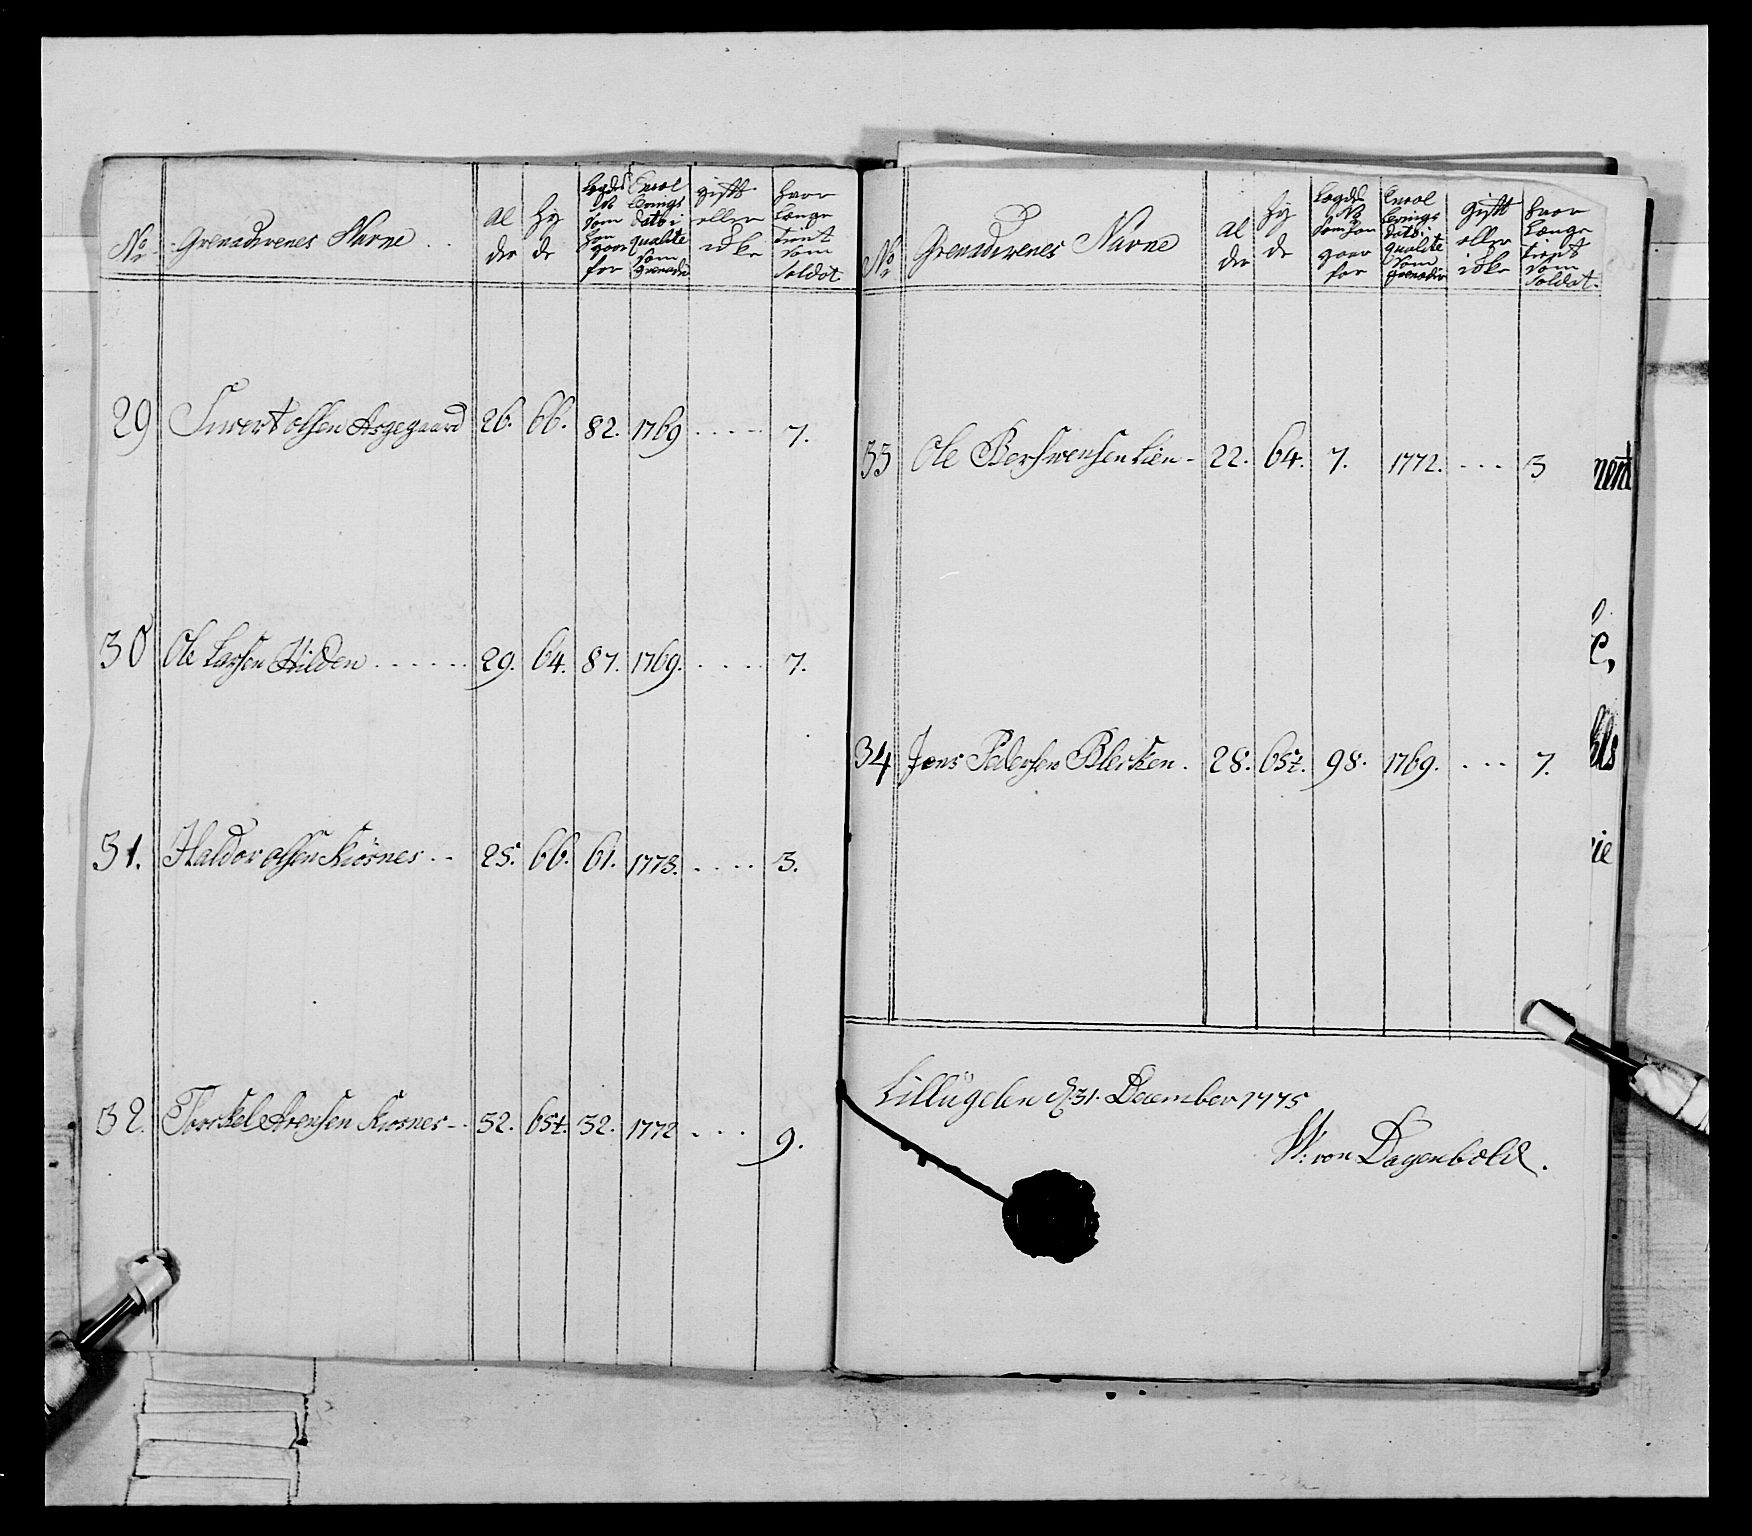 No
Grenaderenes Navne
al
der
Hy
de
Legds
No
som
han
gaar
for
Enrol
lerings
dato i
qualite
som
grenader
gift
eller
icke
hvor
længe
tient
som
Soldat
29 Siwert Olsen Aspegaard 26. 66. 82. 1769 ..... 7.
30 Ole Larsen Hilden ...... 29. 64. 87. 1769. .... 7.
31. Haldor Olsen Kiörnes .. 25. 66. 61. 1773. .... 3.
32. Torckel Svensen Kiörnes -. 32. 65½. 32. 1772 ... 9.
No
Grenaderenes Navne
al
der
Hy
de
Legds
No
som han
gaar
for
Enrol
lerings
dato i
qualite
som
grenader
gift
eller
icke
hvor
længe
tient
som
Soldat.
33 Ole Berswensen Lien - 22. 64. 7. 1772. ... 3
34 Jens Pedersen Blecken. 28. 65½. 98. 1769. ... 7.
d: 31. December 1775
W: von Dagenbold.